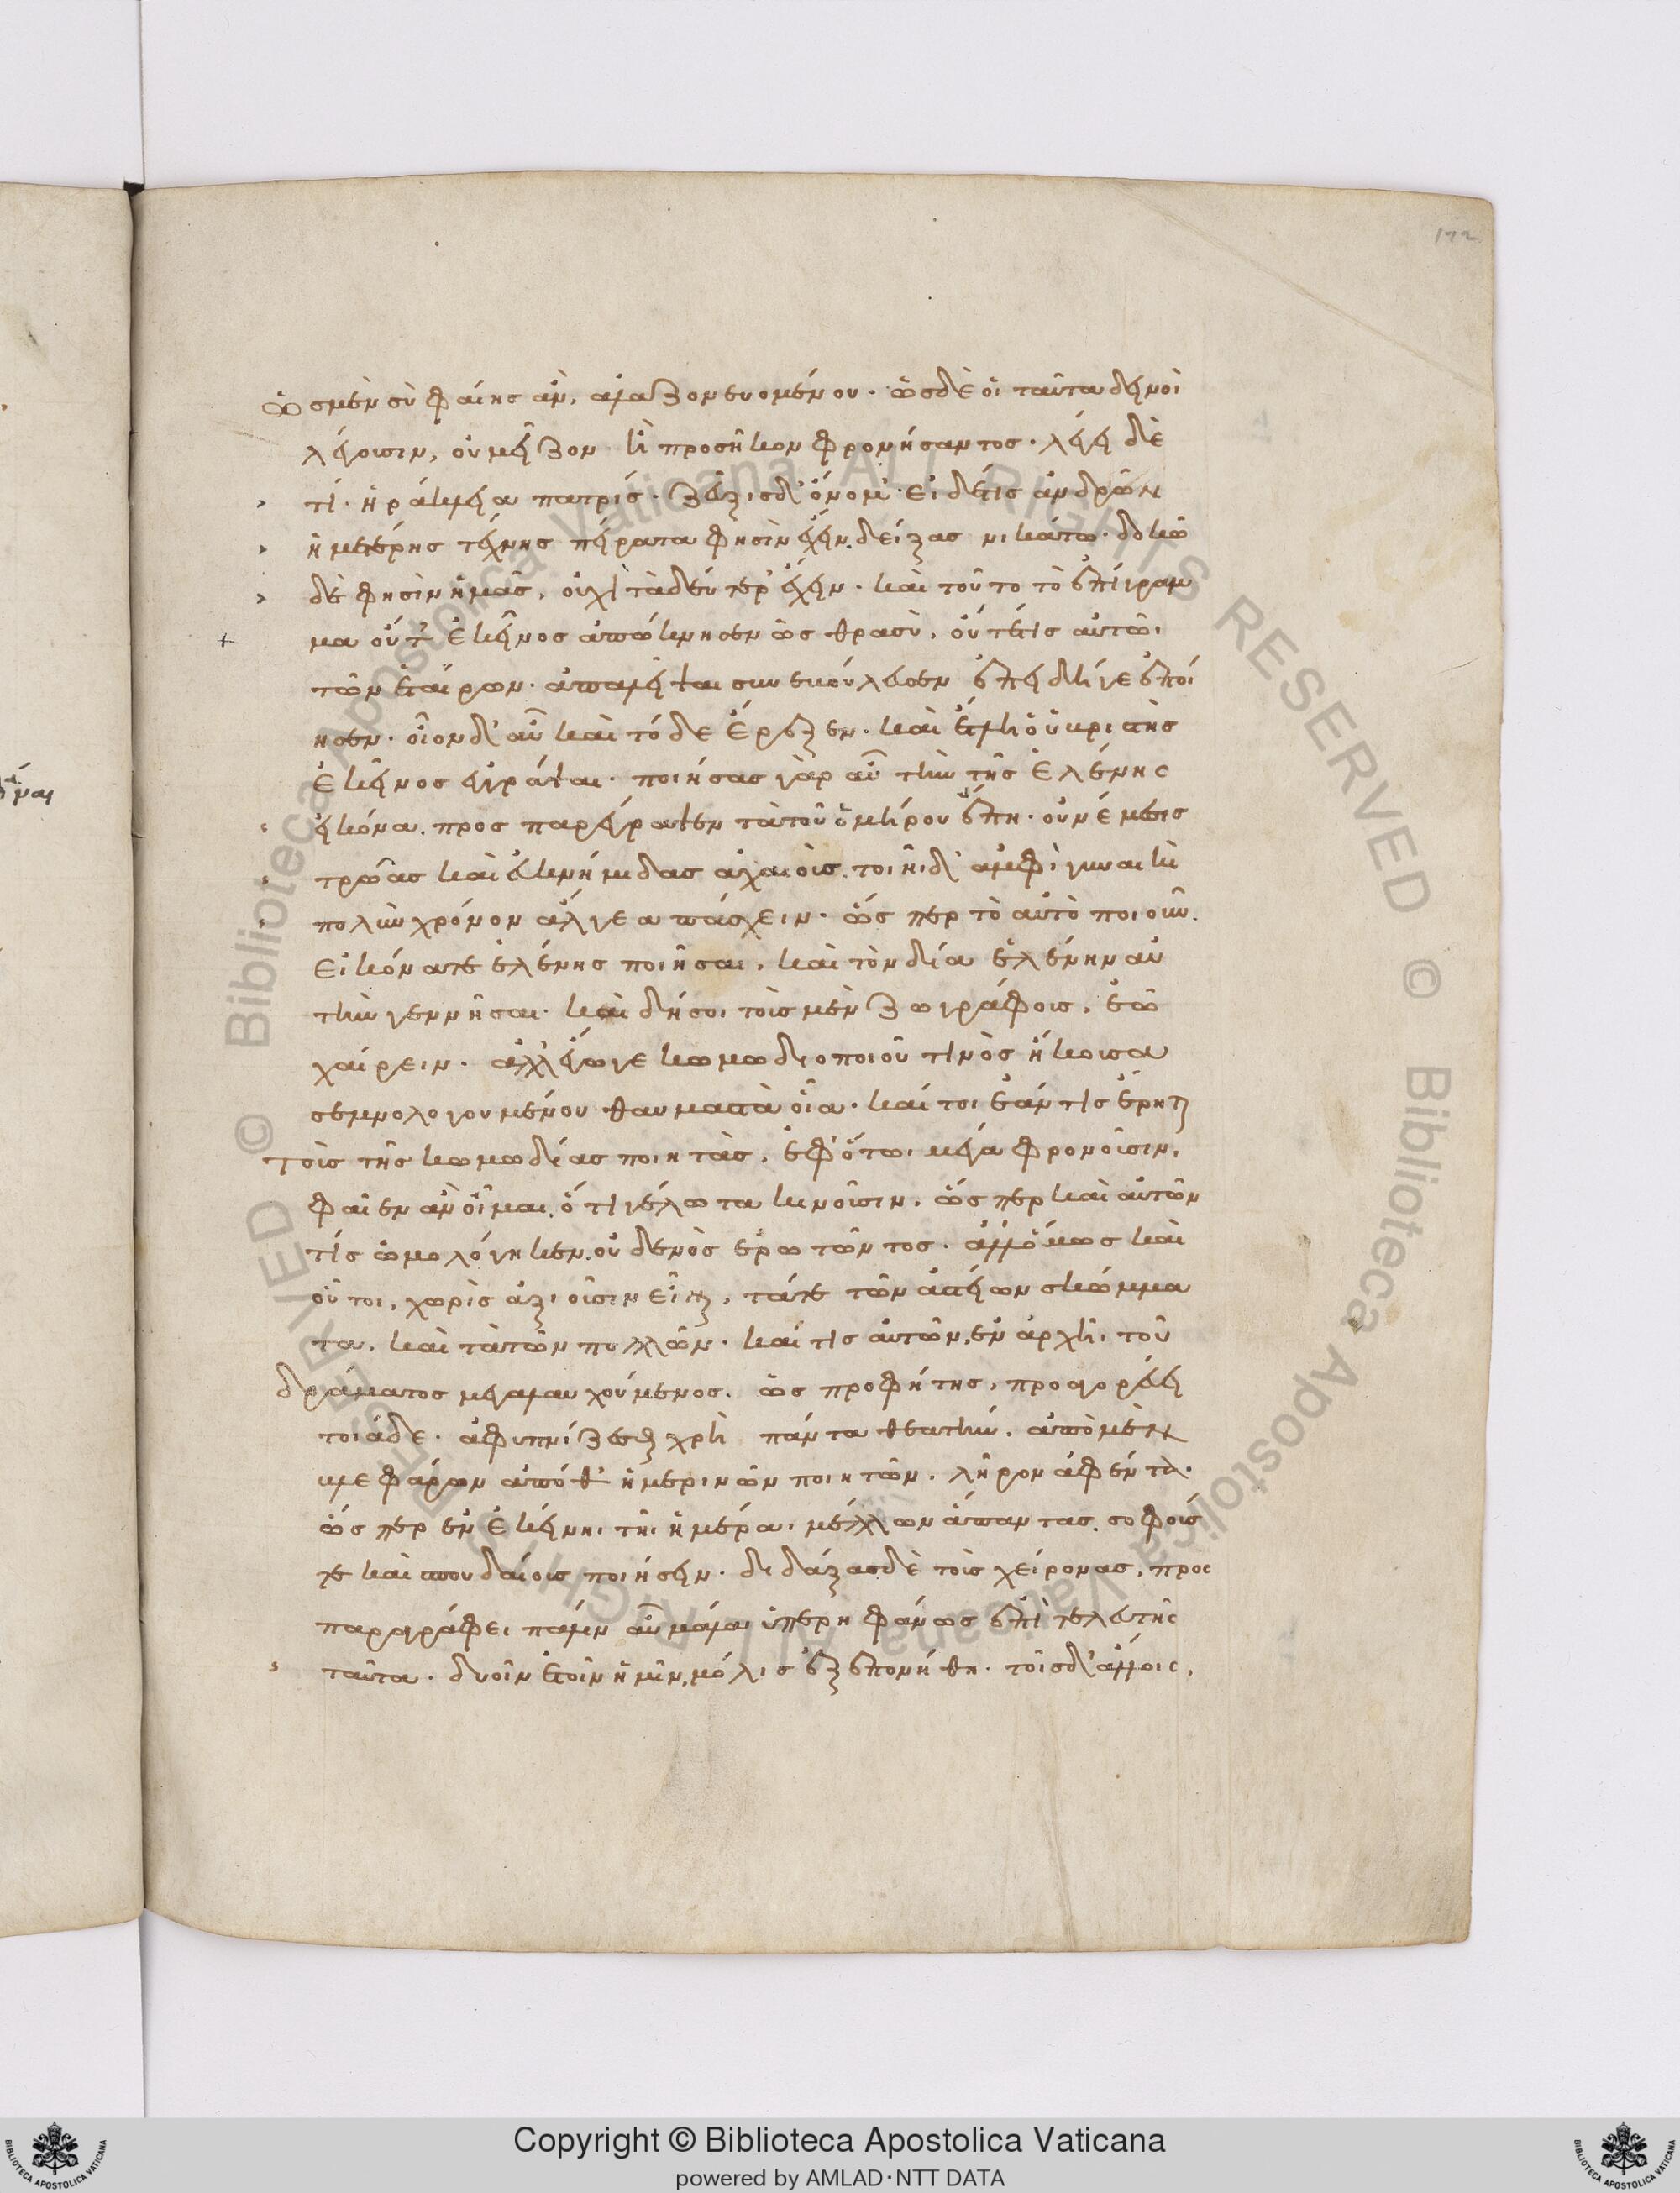 172
ὡς μὲν σὺ φαίης ἂν, ἀλαζονευομένου· ὡς δὲ οἱ ταῦτα δεινοὶ
λέγουσιν, οὐ μεῖζον ἢ προσῆκον φρονήσαντος· λέγει δὲ
τί· Ἡράκλεια πατρίς· Ζεῦξις δ' ὄνομ'· εἰ δέ τις ἀνδρῶν
ἡμετέρης τέχνης πείρατα φησὶν ἔχειν, δείξας νικάτω· δοκῶ
δέ φησιν ἡμᾶς, οὐχὶ τὰ δεύτερ' ἔχειν· καὶ τοῦτο τὸ ἐπίγραμ
μα οὔτ' ἐκεῖνος ἀπώκνησεν ὡς θρασὺ, οὔτέ τις αὐτῶι
τῶν ἑταίρων· ἀπαλεῖψαι συνεβούλευσεν ἐπειδή γε ἐποί
ησεν· οἷον δ' αὖ καὶ τόδε ἔρεξεν· καὶ ἔτι ὁ ὑβριστὴς
ἐκεῖνος ζωγράφος· ποιήσας γὰρ αὖ τὴν τῆς Ἑλένης
εἰκόνα, προσπαρέγραψεν τὰ τοῦ ὁμήρου ἔπη· οὐ νέμεσις
τρῶας καὶ ἐϋκνήμιδας ἀχαιοὺς, τοιῆιδ' ἀμφὶ γυναικὶ
πολὺν χρόνον ἄλγεα πάσχειν· ὥσπερ τὸ αὐτὸ ποιοῦν,
εἰκόνα τε ἑλένης ποιῆσαι, καὶ τὸν δία ἑλένην αὐ
τὴν γεννῆσαι· καὶ δή σοι τοὺς μὲν ζωγράφους, ἐῶ
χαίρειν· ἀλλ' ἔγωγε κωμωδιοποιοῦ τινὸς ἤκουσα
σεμνολογουμένου θαυμαστὰ οἷα· καίτοι ἐάν τις ἔρηται
τοὺς τῆς κωμωδίας ποιητὰς, ἐφ' ὅτωι μέγα φρονοῦσιν,
φαῖεν ἂν οἶμαι, ὅτι γέλωτα κινοῦσιν, ὥσπερ καὶ αὐτῶν
τίς ὡμολόγηκεν, οὐδενὸς ἐρωτῶντος· ἀλλ' ὅμως καὶ
οὗτοι, χωρὶς ἀξιοῦσιν εἶναι, τά τε τῶν ἀστείων σκώμμα
τα, καὶ τὰ τῶν πολλῶν· καί τις αὐτῶν, ἐν ἀρχῆι, τοῦ
δράματος μεγαλαυχούμενος, ὡς προφήτης, προαγορεύει
τοιάδε· ἀφυπνίζεσθαι χρὴ πάντα θεατὴν, ἀπὸ μὲν
βλεφάρων αὐθημερινῶν ποιητῶν, λῆρον ἀφέντα·
ὥσπερ ἐν ἐκείνηι τῆι ἡμέραι μέλλων ἅπαντας, σοφούς
τε καὶ σπουδαίους ποιήσειν· διδάξας δὲ τοὺς χείρονας, προς
παραγράφει πάλιν αὖ μάλα ὑπερηφάνως ἐπὶ τελευτῆς
ταῦτα· δυοῖν ἐτοῖν ἡμῖν, μόλις ἐξεπονήθη· τοῖς δ' ἄλλοις,
Copyright © Biblioteca Apostolica Vaticana
powered by AMLAD·NTT DATA